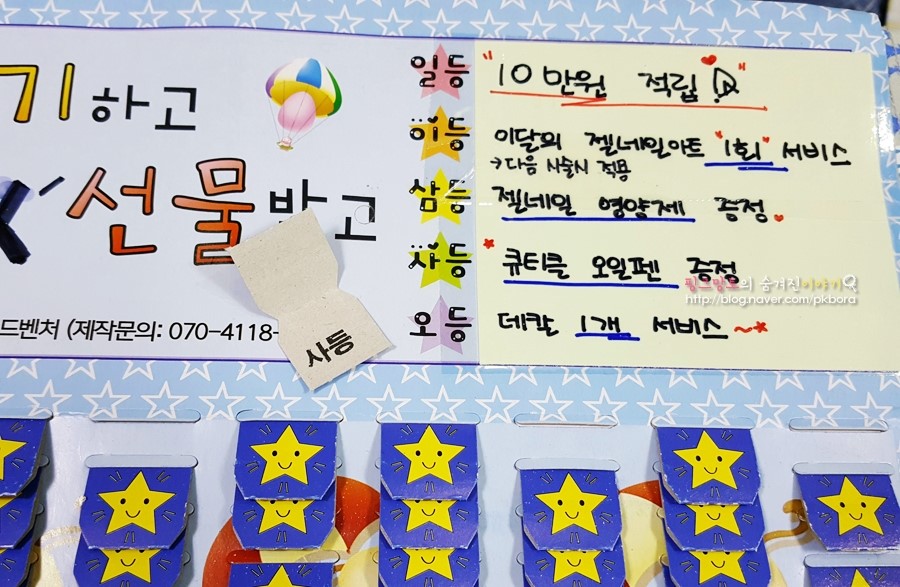 기하고
선물 받고
드벤처 (제작문의: 070-4118-
사등
일등 "10만원 적립"
이등 이달의 젤네일아트 "1회" 서비스
→다음 시술시 적용
삼등 젤네일 영양제 증정
사등 큐티클 오일펜 증정
오등 데칼 1개 서비스~
의 숨겨진이야기
http://blog.naver.com/pkbora